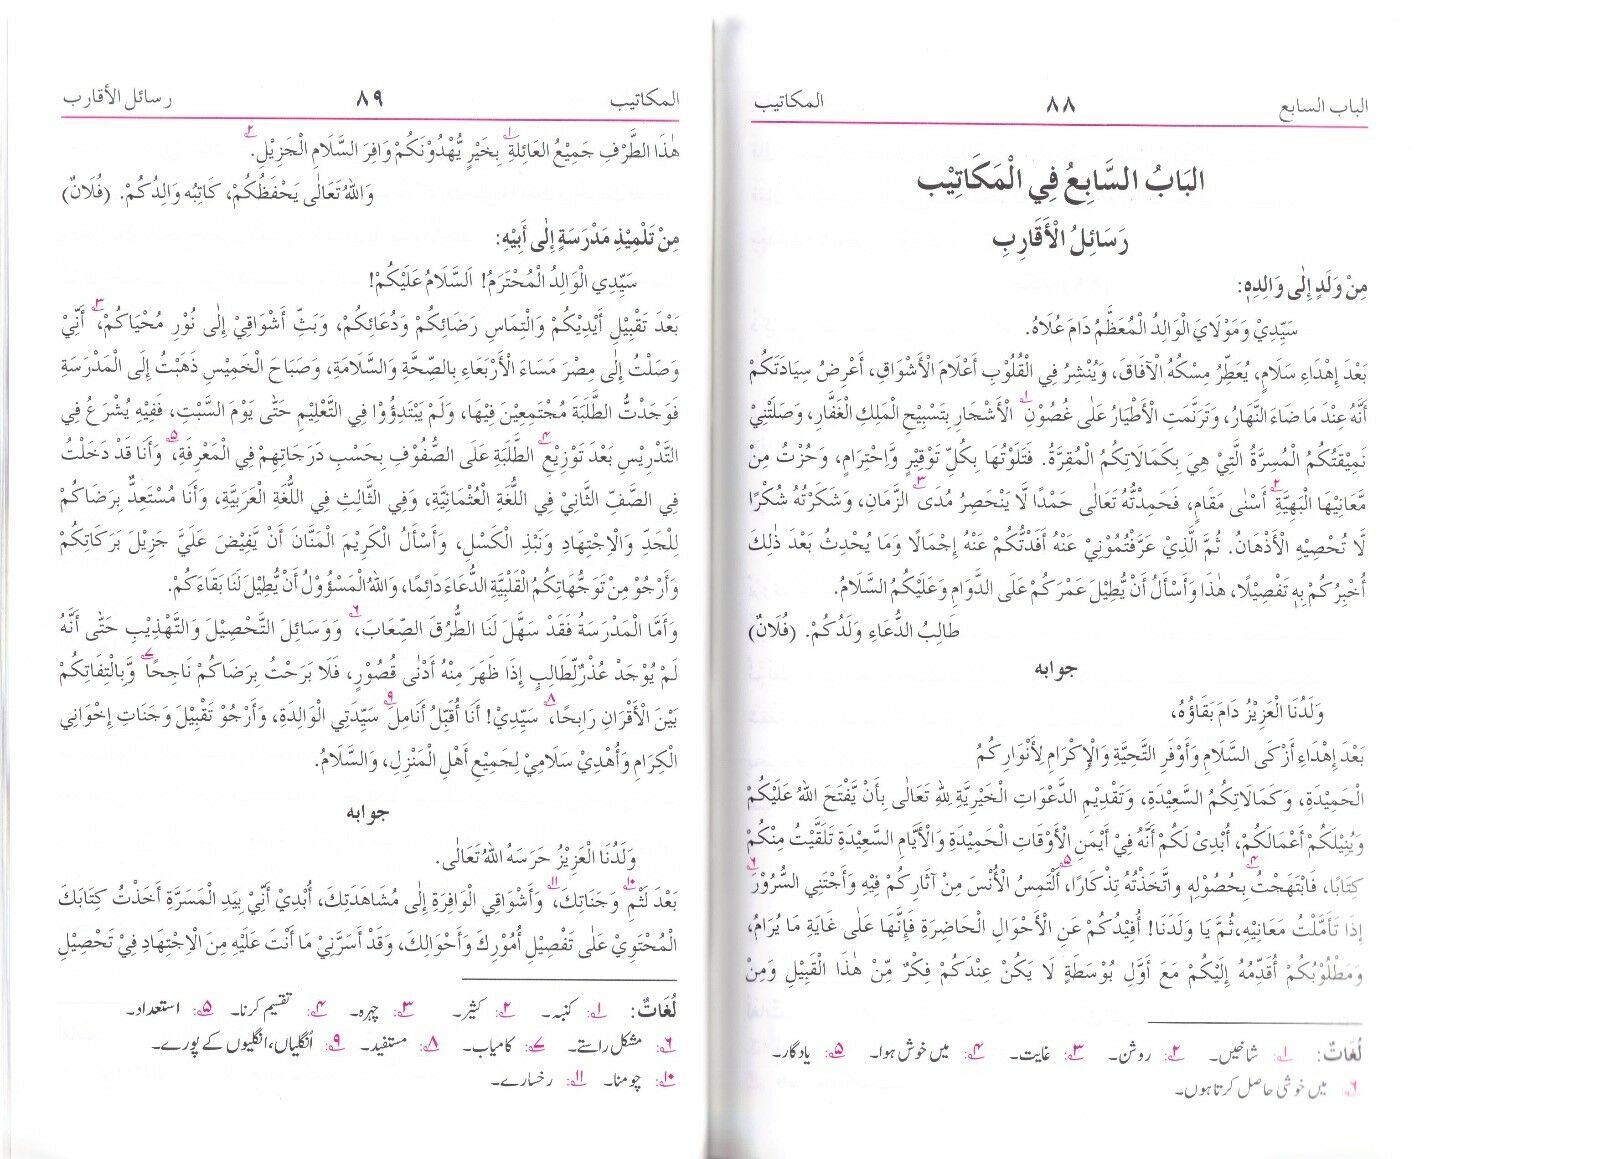 الباب السابع ٨٨ المكاتيب
البَابُ السَّابِعُ فِي الْمَكَاتِيْب
رَسَائِلُ الْأَقَارِبِ
مِنْ وَلَدٍ إِلٰى وَالِدِهٖ:
سَيِّدِيْ وَمَوْلَايَ الْوَالِدُ الْمُعَظَّمُ دَامَ عُلَاهُ.
بَعْدَ إِهْدَاءِ سَلَامٍ، يُعَطِّرُ مِسْكُهُ الْآفَاقَ، وَيُنْشِرُ فِي الْقُلُوْبِ أَعْلَامَ الْأَشْوَاقِ، أَعْرِضُ سِيَادَتَكُمْ
أَنَّهُ عِنْدَ مَا ضَاءَ النَّهَارُ، وَتَرَنَّمَتِ الْأَطْيَارُ عَلٰى غُصُوْنِ١ الْأَشْجَارِ بِتَسْبِيْحِ الْمَلِكِ الْغَفَّارِ، وَصَلَتْنِيْ
نَمِيْقَتُكُمُ الْمُسِرَّةُ الَّتِيْ هِيَ بِكَمَالَاتِكُمُ الْمُقِرَّةُ. فَتَلَوْتُهَا بِكُلِّ تَوْقِيْرٍ وَّاحْتِرَامٍ، وَحُزْتُ مِنْ
مَّعَانِيْهَا الْبَهِيَّةِ٢ أَسْنٰى مَقَامٍ، فَحَمِدْتُّهُ تَعَالٰى حَمْدًا لَّا يَنْحَصِرُ مُدَى٣ الزَّمَانِ، وَشَكَرْتُهُ شُكْرًا
لَّا تُحْصِيْهِ الْأَذْهَانُ. ثُمَّ الَّذِيْ عَرَّفْتُمُوْنِيْ عَنْهُ أَفَدْتُّكُمْ عَنْهُ إِجْمَالًا وَمَا يُحْدِثُ بَعْدَ ذٰلِكَ
أُخْبِرُكُمْ بِهٖ تَفْصِيْلًا، هٰذَا وَأَسْأَلُ أَنْ يُّطِيْلَ عَمْرَكُمْ عَلَى الدَّوَامِ وَعَلَيْكُمُ السَّلَامُ.
طَالِبُ الدُّعَاءِ وَلَدُكُمْ. (فُلَانٌ)
جوابه
وَلَدُنَا الْعَزِيْزُ دَامَ بَقَاؤُهُ،
بَعْدَ إِهْدَاءِ أَزْكَى السَّلَامِ وَأَوْفَرِ التَّحِيَّةِ وَالْإِكْرَامِ لِأَنْوَارِكُمُ
الْحَمِيْدَةِ، وَكَمَالَاتِكُمُ السَّعِيْدَةِ، وَتَقْدِيْمِ الدَّعْوَاتِ الْخَيْرِيَّةِ لِلّٰهِ تَعَالٰى بِأَنْ يَّفْتَحَ اللهُ عَلَيْكُمْ
وَيُنِيْلَكُمْ أَعْمَالَكُمْ، أُبْدِيْ لَكُمْ أَنَّهُ فِيْ أَيْمَنِ الْأَوْقَاتِ الْحَمِيْدَةِ وَالْأَيَّامِ السَّعِيْدَةِ تَلَقَّيْتُ مِنْكُمْ
كِتَابًا، فَابْتَهَجْتُ٤ بِحُصُوْلِهٖ وَاتَّخَذْتُهُ تِذْكَارًا٥، أَلْتَمِسُ الْأُنْسَ مِنْ آثَارِكُمْ فِيْهِ وَأَجْتَنِي السُّرُوْرَ٦
إِذَا تَأَمَّلْتُ مَعَانِيْهِ، ثُمَّ يَا وَلَدَنَا! أُفِيْدُكُمْ عَنِ الْأَحْوَالِ الْحَاضِرَةِ فَإِنَّهَا عَلٰى غَايَةِ مَا يُرَامُ،
وَمَطْلُوْبُكُمْ أُقَدِّمُهُ إِلَيْكُمْ مَعَ أَوَّلِ بُوْسَطَةٍ لَا يَكُنْ عِنْدَكُمْ فِكْرٌ مِّنْ هٰذَا الْقَبِيْلِ وَمِنْ
لُغَاتٌ: ١: شاخیں۔ ٢: روشن۔ ٣: غایت۔ ۴: میں خوش ہوا۔ ۵: یادگار۔
۶: میں خوشی حاصل کرتا ہوں۔
المكاتيب ٨٩ رسائل الأقارب
هٰذَا الطَّرْفِ جَمِيْعُ العَائِلَةِ١ بِخَيْرٍ يُّهْدُوْنَكُمْ وَافِرَ السَّلَامِ الْجَزِيْلِ٢.
وَاللهُ تَعَالٰى يَحْفَظُكُمْ، كَاتِبُه وَالِدُكُمْ. (فُلَانٌ)
مِنْ تَلْمِيْذِ مَدْرَسَةٍ إِلٰى أَبِيْهِ:
سَيِّدِي الْوَالِدُ الْمُحْتَرَمُ! اَلسَّلَامُ عَلَيْكُمْ!
بَعْدَ تَقْبِيْلِ أَيْدِيْكُمْ وَالْتِمَاسِ رَضَائِكُمْ وَدُعَائِكُمْ، وَبَثِّ أَشْوَاقِيْ إِلٰى نُوْرِ مُحْيَاكُمْ٣، أَنِّيْ
وَصَلْتُ إِلٰى مِصْرَ مَسَاءَ الْأَرْبَعَاءِ بِالصِّحَّةِ وَالسَّلَامَةِ، وَصَبَاحَ الْخَمِيْسِ ذَهَبْتُ إِلَى الْمَدْرَسَةِ
فَوَجَدْتُّ الطَّلَبَةَ مُجْتَمِعِيْنَ فِيْهَا، وَلَمْ يَبْتَدِؤُوْا فِي التَّعْلِيْمِ حَتّٰى يَوْمِ السَّبْتِ، فَفِيْهِ يُشْرَعُ فِي
التَّدْرِيْسِ بَعْدَ تَوْزِيْعِ٤ الطَّلَبَةِ عَلَى الصُّفُوْفِ بِحَسْبِ دَرَجَاتِهِمْ فِي الْمَعْرِفَةِ٥، وَأَنَا قَدْ دَخَلْتُ
فِي الصَّفِّ الثَّانِيْ فِي اللُّغَةِ الْعُثْمَانِيَّةِ، وَفِي الثَّالِثِ فِي اللُّغَةِ الْعَرَبِيَّةِ، وَأَنَا مُسْتَعِدٌّ بِرَضَاكُمْ
لِلْجَدِّ وَالْاِجْتِهَادِ وَنَبْذِ الْكَسْلِ، وَأَسْأَلُ الْكَرِيْمَ الْمَنَّانَ أَنْ يَّفِيْضَ عَلَيَّ جَزِيْلَ بَرَكَاتِكُمْ
وَأَرْجُوْ مِنْ تَوَجُّهَاتِكُمُ الْقَلْبِيَّةِ الدُّعَاءَ دَائِمًا، وَاللهُ الْمَسْؤُوْلُ أَنْ يُّطِيْلَ لَنَا بَقَاءَكُمْ.
وَأَمَّا الْمَدْرَسَةُ فَقَدْ سَهَّلَ لَنَا الطُّرُقَ الصِّعَابَ٦، وَوَسَائِلَ التَّحْصِيْلَ وَالتَّهْذِيْبِ حَتّٰى أَنَّهُ
لَمْ يُوْجَدْ عُذْرٌ لِّطَالِبٍ إِذَا ظَهَرَ مِنْهُ أَدْنٰى قُصُوْرٍ، فَلَا بَرَحْتُ بِرَضَاكُمْ نَاجِحًا٧ وَّبِالْتِفَاتِكُمْ
بَيْنَ الْأَقْرَانِ رَابِحًا٨، سَيِّدِيْ! أَنَا أُقَبِّلُ أَنَامِلَ٩ سَيِّدَتِي الْوَالِدَةِ، وَأَرْجُوْ تَقْبِيْلَ وَجَنَاتِ إِخْوَانِي
الْكِرَامِ وَأُهْدِيْ سَلَامِيْ لِجَمِيْعِ أَهْلِ الْمَنْزِلِ، وَالسَّلَامُ.
جوابه
وَلَدُنَا الْعَزِيْزُ حَرَسَهُ اللهُ تَعَالٰى.
بَعْدَ لَثْمِ١٠ وَجَنَاتِكَ١١، وَأَشْوَاقِي الْوَافِرَةِ إِلٰى مُشَاهَدَتِكَ، أُبْدِيْ أَنِّيْ بِيَدِ الْمَسَرَّةِ أَخَذْتُ كِتَابَكَ
الْمُحْتَوِيْ عَلٰى تَفْصِيْلِ أُمُوْرِكَ وَأَحْوَالِكَ، وَقَدْ أَسَرَّنِيْ مَا أَنْتَ عَلَيْهِ مِنَ الْاِجْتِهَادِ فِيْ تَحْصِيْلِ
لُغَاتٌ: ١: کنبہ۔ ٢: کثیر۔ ٣: چہرہ۔ ۴: تقسیم کرنا۔ ۵: استعداد۔
۶: مشکل راستے۔ ۷: کامیاب۔ ۸: مستفید۔ ۹: اُنگلیاں، انگلیوں کے پورے۔
۱۰: چومنا۔ ۱۱: رخسارے۔